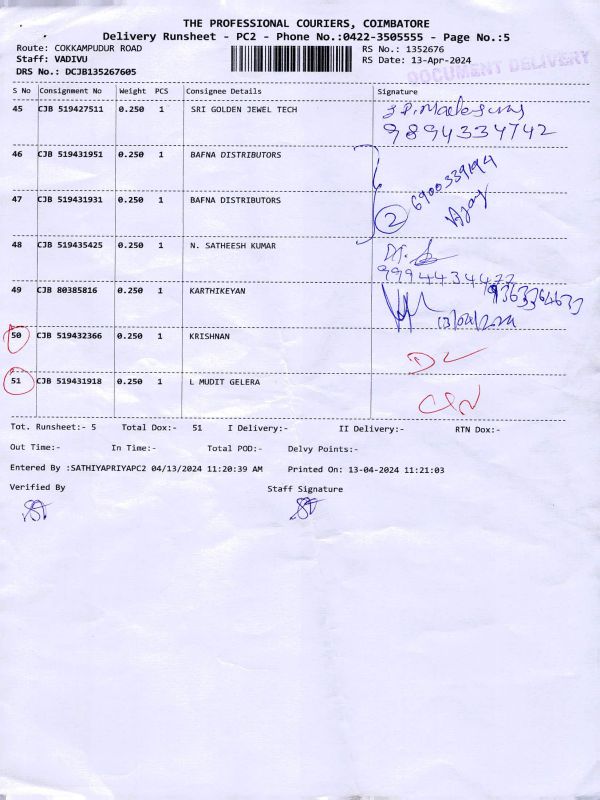 THE PROFESSIONAL COURIERS, COIMBATORE
Delivery Runsheet - PC2 - Phone No.:0422-3505555 - Page No.:5
Route: COKKAMPUDUR ROAD
RS No.: 1352676
Staff: VADIVU
RS Date: 13-Apr-2024
DRS No.: DCJB135267605
DOCUMENT DELIVERY
S No Consignment No Weight PCS Consignee Details Signature
45 CJB 519427511 0.250 1 SRI GOLDEN JEWEL TECH
9894334742
46 CJB 519431951 0.250 1 BAFNA DISTRIBUTORS
47 CJB 519431931 0.250 1 BAFNA DISTRIBUTORS
2
Ajay
48 CJB 519435425 0.250 1 N. SATHEESH KUMAR
49 CJB 80385816 0.250 1 KARTHIKEYAN
50 CJB 519432366 0.250 1 KRISHNAN
DL
51 CJB 519431918 0.250 1 L MUDIT GELERA
Tot. Runsheet:- 5 Total Dox:- 51 I Delivery:- II Delivery:- RTN Dox:-
Out Time:- In Time:- Total POD:- Delvy Points:-
Entered By :SATHIYAPRIYAPC2 04/13/2024 11:20:39 AM Printed On: 13-04-2024 11:21:03
Verified By Staff Signature